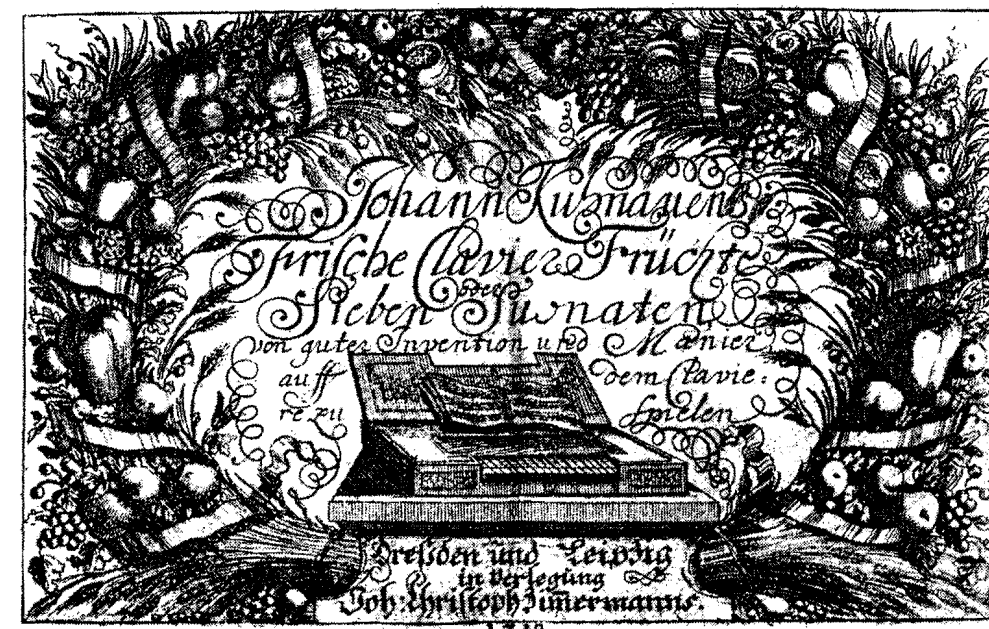 Johann Kuhnauens
Frische Clavier Früchte
oder
Sieben Suonaten
von guter Invention und Manier
auff dem Clavie:
re zu spielen
Dreßden und Leipzig
in Verlegung
Joh: Christoph Zim̅ermanns.